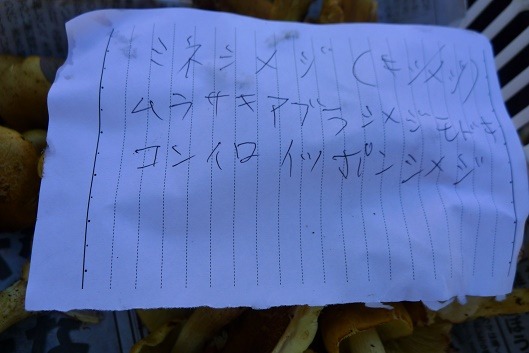 ミネシメジ (キシメジ)
ムラサキアブラシメジモドキ
コンイロイッポンシメジ